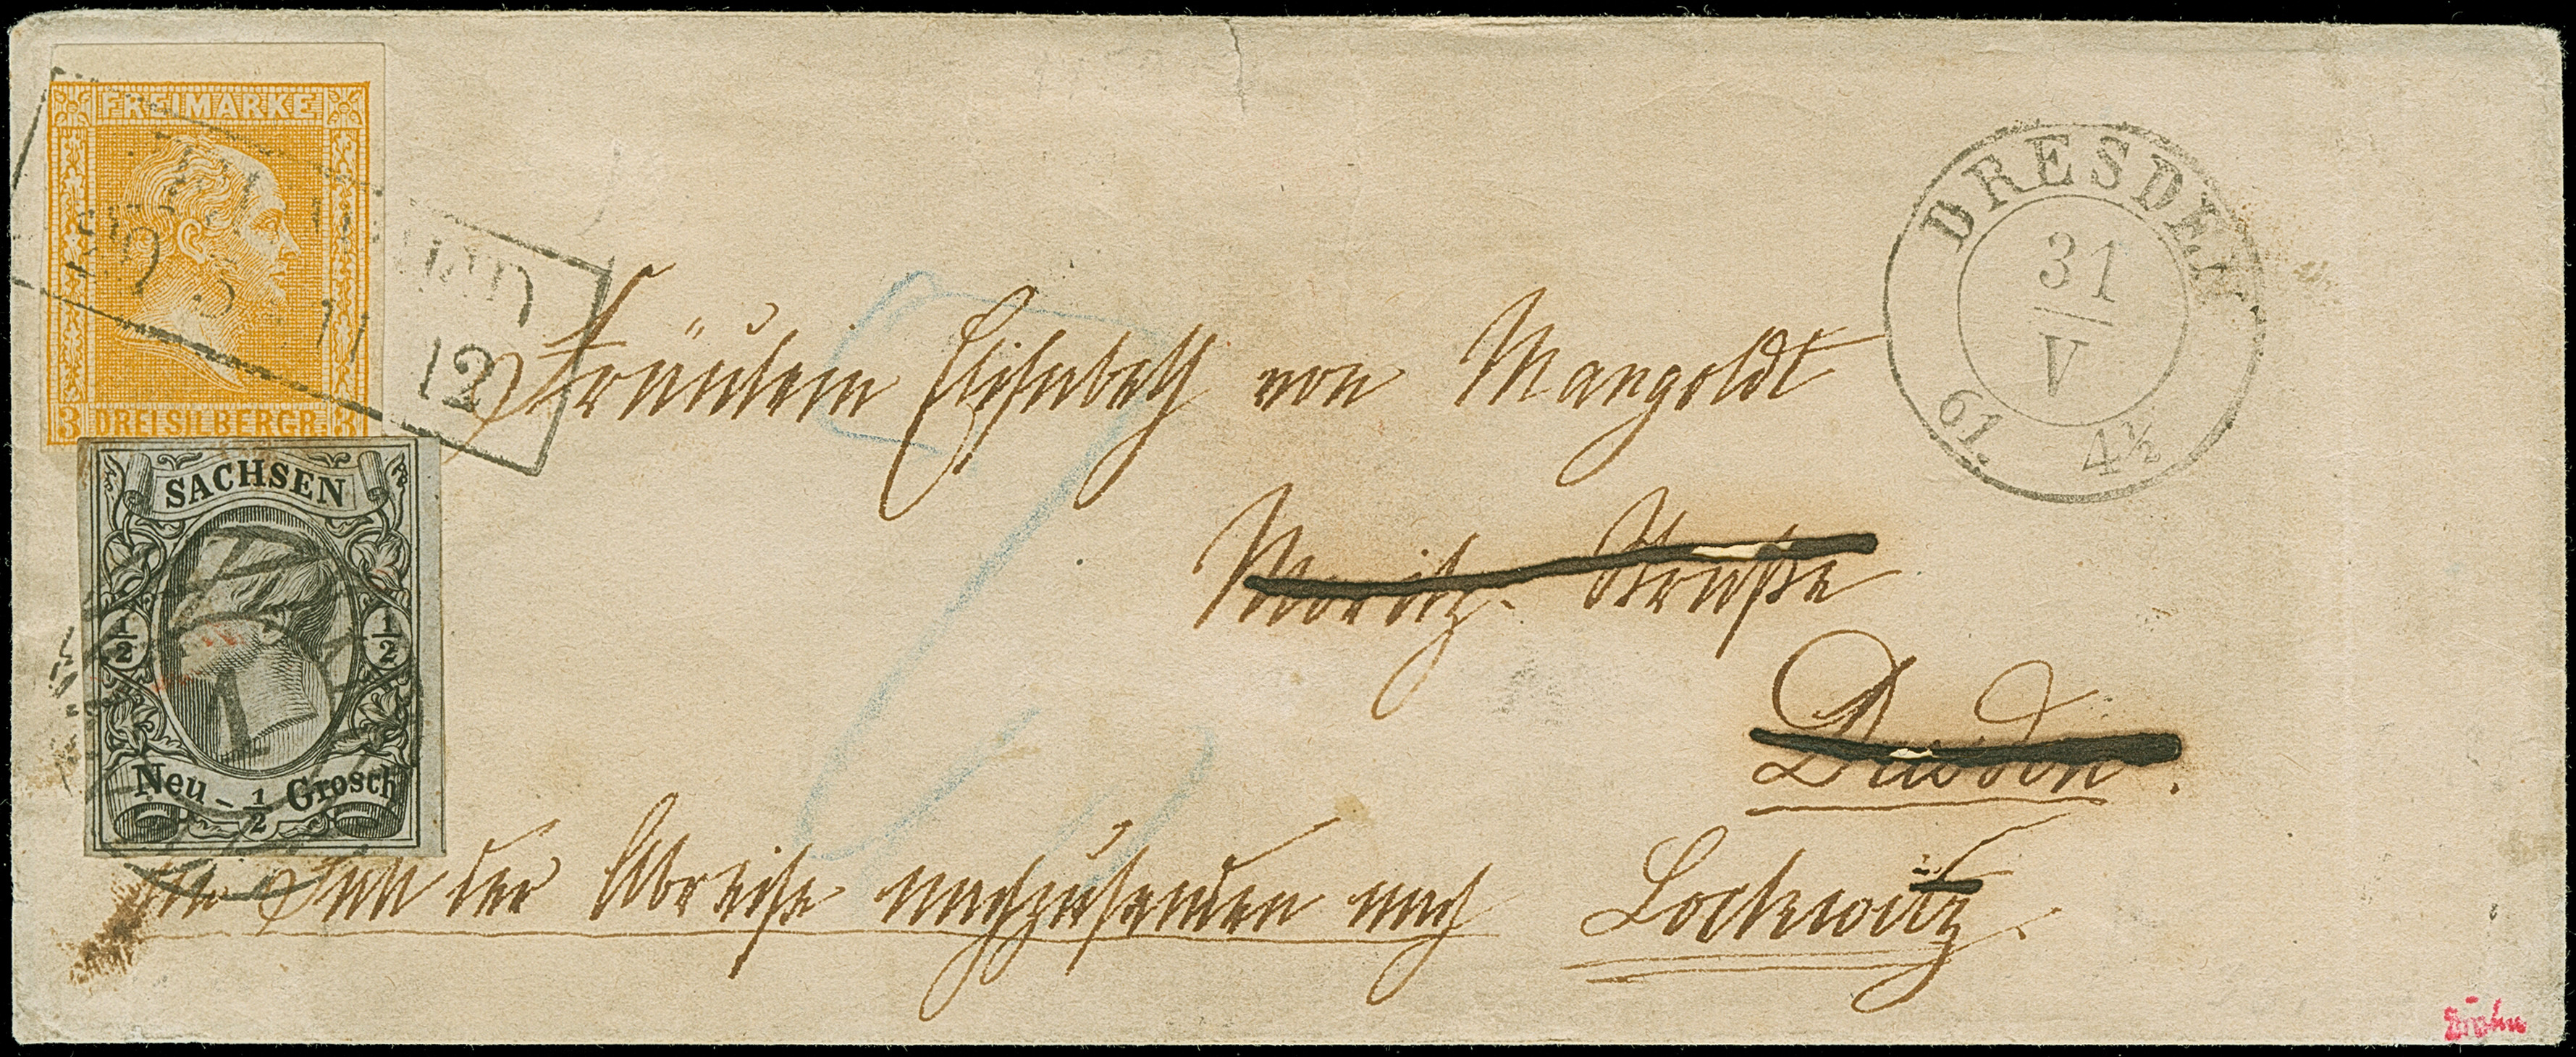 FREIMARKE
3 DREI SILBERGR. 3
12
SACHSEN
1/2 1/2
1
Neu - 1/2 Grosch
DRESDEN
31
V
61. 4½
Fräulein Elisabeth von Mangoldt
Moritz-Straße
Dresden.
Im Fall der Abreise nachzusenden nach Lockwitz.